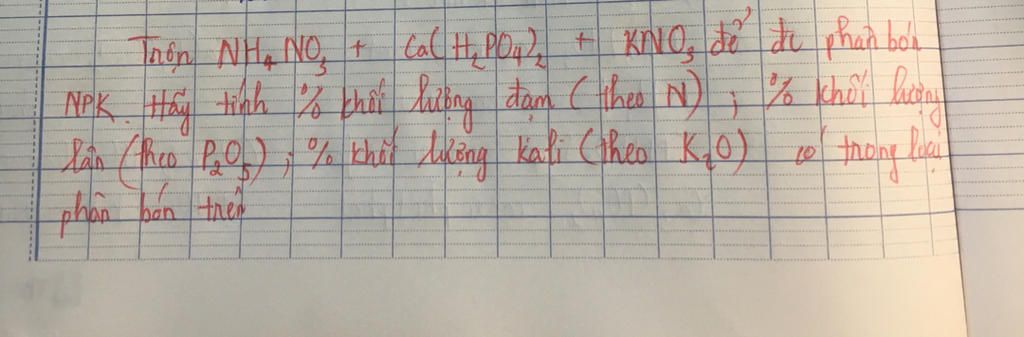 Trộn NH₄NO₃ + Ca(H₂PO₄)₂ + KNO₃ để đc phân bón
NPK. Hãy tính % khối lượng đạm (theo N); % khối lượng
lân (theo P₂O₅); % khối lượng kali (theo K₂O) có trong loại
phân bón trên